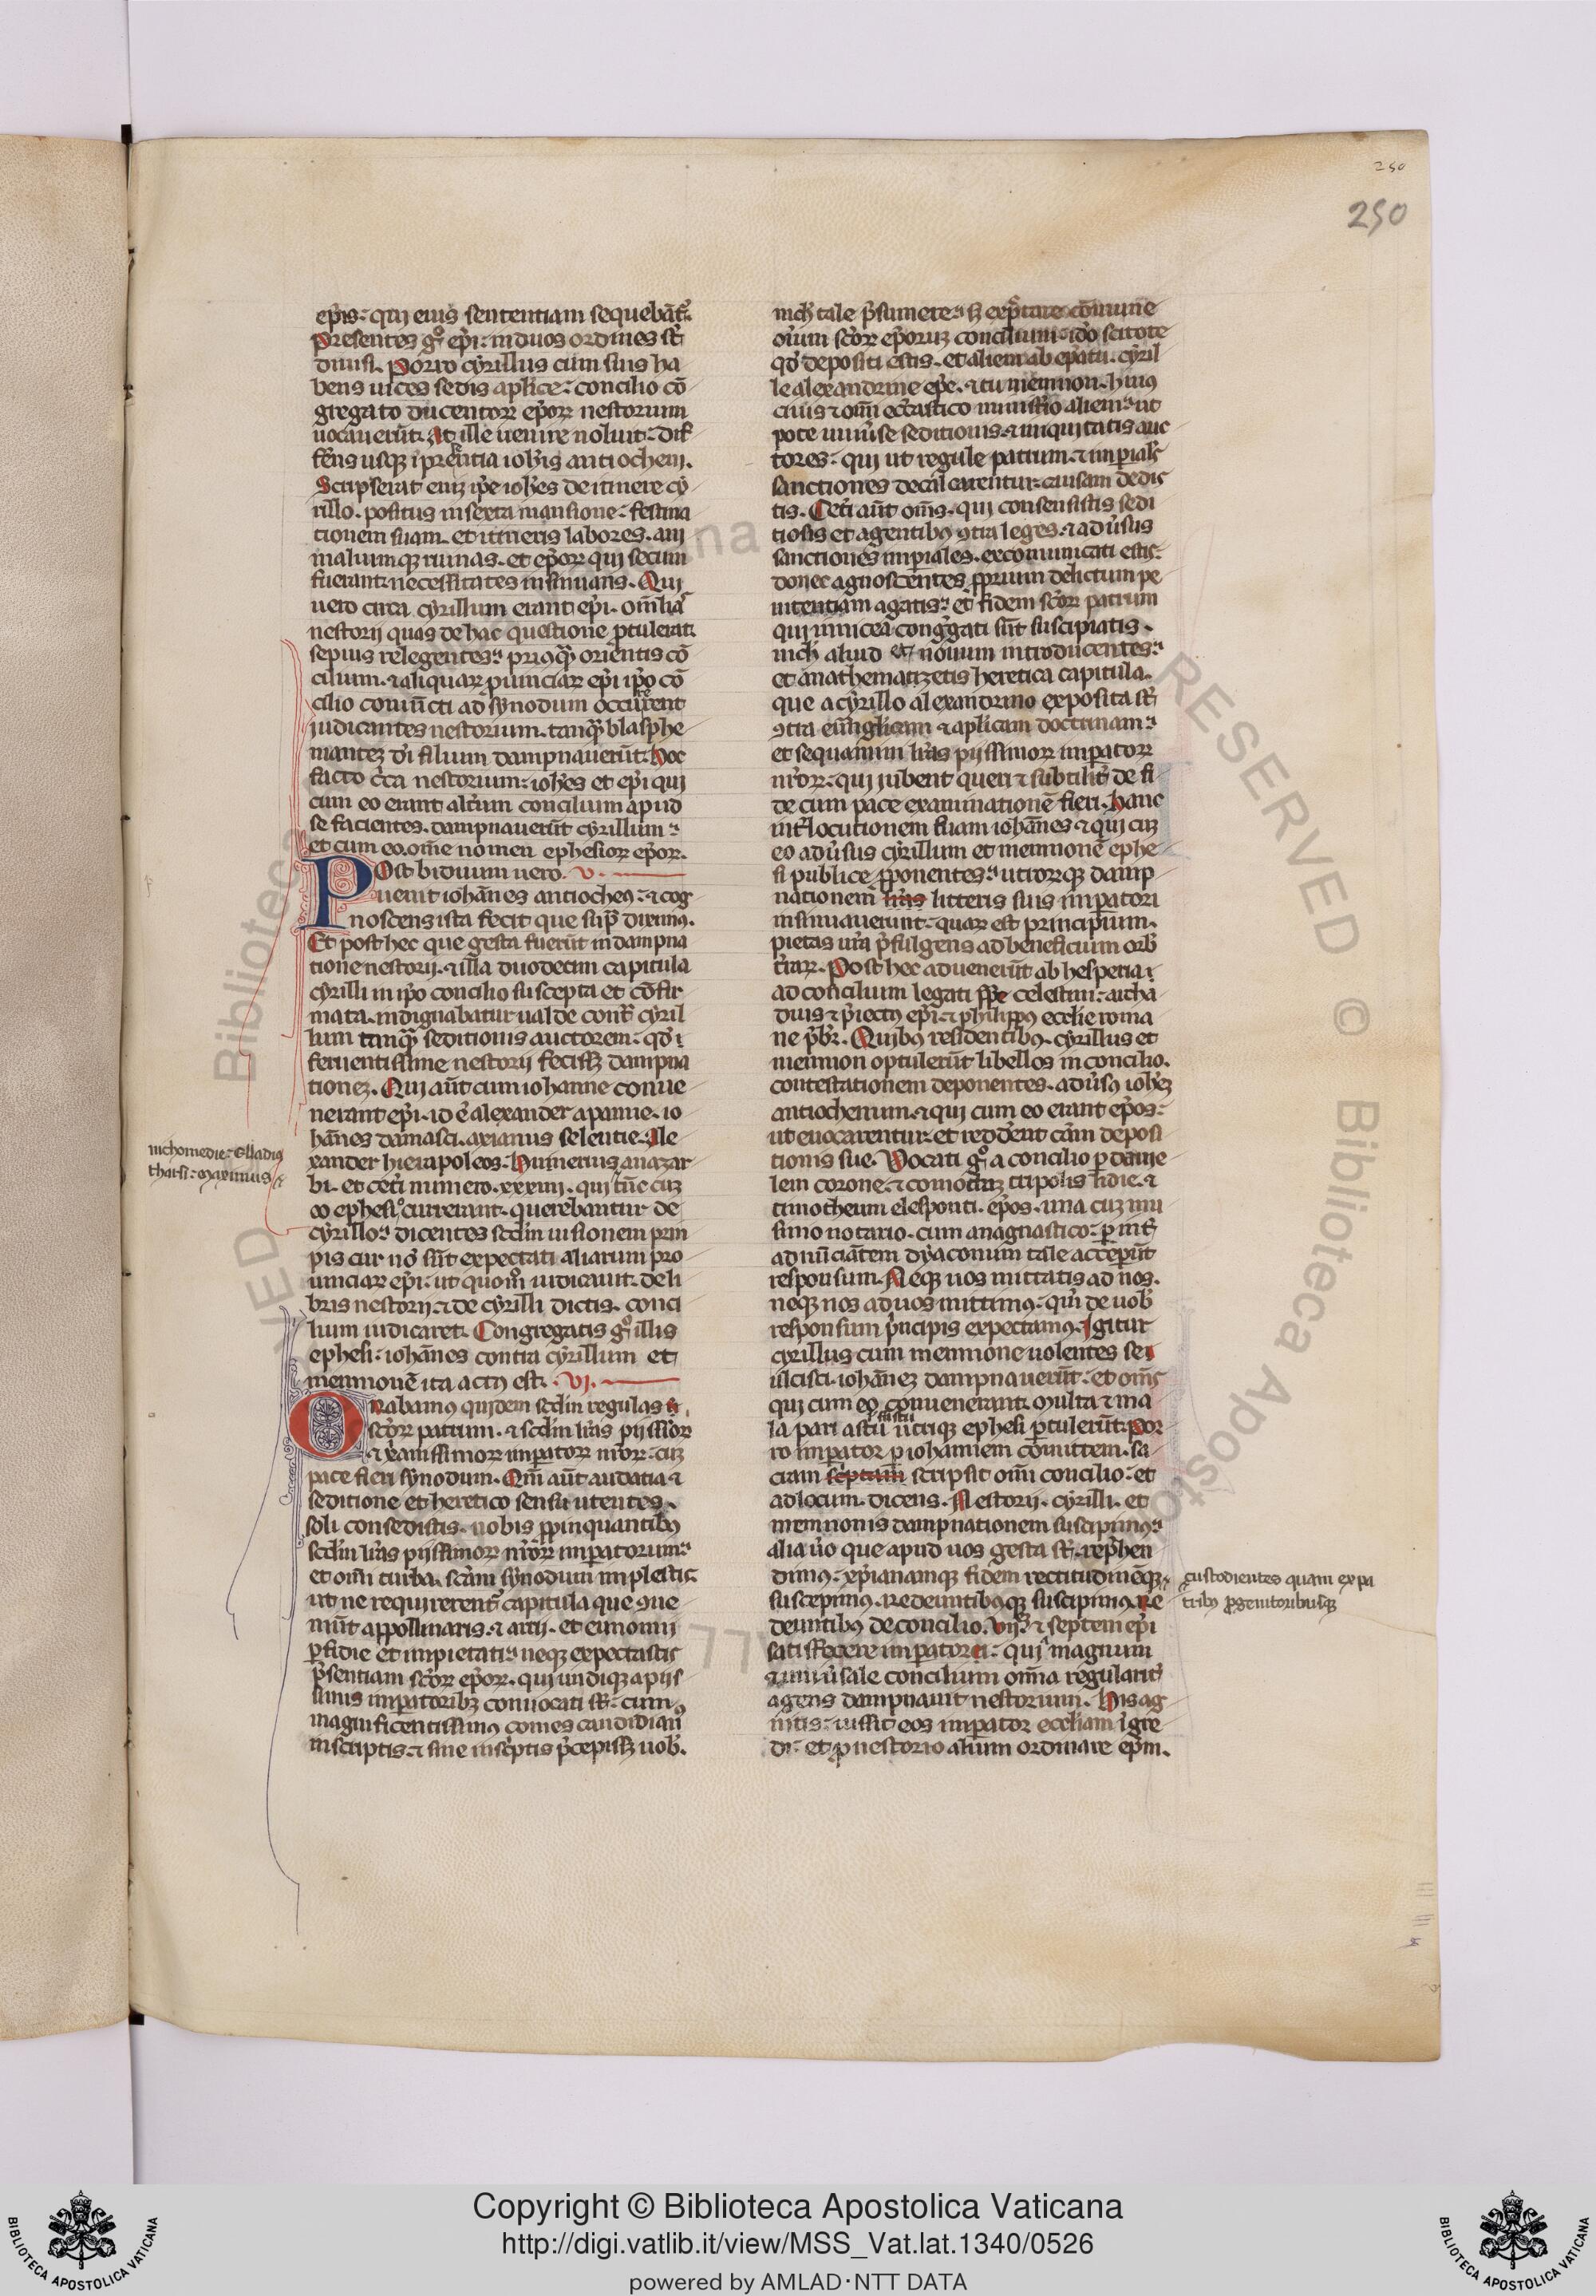 250
250
ep̄is. quj eius sententiam sequebāt᷑.
Presentes g̊ ep̄i. in duos ordines st̄
diuisi. Porro cyrillus cum suis ha
bens uices sedis ap̄lice. concilio cō
gregato ducentorꝝ ep̄orꝝ nestorium
uocauerūt. At ille uenire noluit. dif
ferens usqꝫ ī presentia ioh̄is antiocheni.
Scripserat enī ip̄e ioh̄es de itinere cy
rillo. positus in sexta mansione. festina
tionem suam. et itineris labores. ani
maliumqꝫ ruinas. et ep̄orꝝ quj secum
fuerant necessitates insinuans. Quj
uero circa cyrillum erant ep̄i. om̄lias
nestorij quas de hac questione ꝓtulerat
sepius relegentes. priusqꝫ orientis cō
cilium. ⁊ aliquarꝝ ꝓuinciarꝝ ep̄i ip̄o cō
cilio coniūcti ad synodum occurrent
judicantes nestorium. tanqꝫ blasphe
mantez dī filium dampnauerūt. Hoc
facto c̄ca nestorium. ioh̄es et ep̄i quj
cum eo erant alt̄um concilium apud
se facientes. dampnauerūt cyrillum.
et cum eo. om̄e nomen ephesiorꝝ ep̄orꝝ.
Post biduum uero. v.
uenit ioh̄annes antiochenꝰ. ⁊ cog
noscens ista fecit que sup̄ diximꝰ.
Et post hec que gesta fuerūt in dampna
tione nestorij. ⁊ illa duodecim capitula
cyrilli in ip̄o concilio suscepta et cōfir
mata. indignabatur ualde contͣ cyril
lum tanqꝫ seditionis auctorem. qd̄ ī
feruentissime nestorij fecissꝫ dampna
tionez. Quj aūt cum iohanne conue
nerant ep̄i. id ē alexander apamie. io
hānes damasci. axianus seleutie. Ale
xander hierapoleos. Himerius anazar
bi. et cet̄i numero. xxxiiij. quj tūc cuꝫ
eo ephesi cucurrerant. querebantur de
cyrillo. dicentes scd̄m iussionem prin
pis cur nō sūt expectati aliarum pro
uinciarꝝ ep̄i. ut quom̊ iudicauit. de li
bris nestorij ⁊ de cyrilli dictis. conci
lium iudicaret. Congregatis g̊ illis
ephesi. iohānes contra cyrillum et
memnonē ita actꝰ est. VI.
Orabamꝰ quidem scd̄m regulas
sc̄orꝝ patrum. ⁊ scd̄m lr̄as pijssimorꝝ
⁊ xp̄ianissimorꝝ impatorꝝ nr̄orꝝ. cuꝫ
pace fieri synodum. Qm̄ aūt audatia ⁊
seditione et heretico sensu utentes.
soli consedistis. nobis ꝓpinquantibꝰ
scd̄m lr̄as pijssimorꝝ nr̄orꝝ impatorum.
et om̄i turba. sc̄am synodum implestis
ut ne requirerent᷑ capitula que ꝯue
niūt appollinaris. ⁊ arrij. et eunomij
ꝑfidie et impietati. neqꝫ expectastis
p̄sentiam sc̄orꝝ ep̄orꝝ. quj undiqꝫ a pijs
simis impatoribꝫ conuocati st̄. cumqꝫ
magnificentissimꝰ comes candidianꝰ
in scriptis. ⁊ sine inscriptis p̄cepissꝫ uob̄.
nichomedie. Elladiꝰ
tharsi. Maximus
nich̄ tale p̄sumere. sꝫ exp̄ctare cōmune
oīum sc̄orꝝ ep̄oruꝫ concilium. ido scitote
qd̄ depositi estis. et alieni ab ep̄atu. cyril
le alexandrine ep̄e. ⁊ tu memnon. huiꝰ
ciuis ⁊ om̄i eccl̄iastico ministr̄io alieni. ut
pote uniu̓se seditionis. ⁊ iniquitatis auc
tores. quj ut regule patrum. ⁊ imperiales
sanctiones decalcarentur. causam dedis
tis. Cet̄i aūt om̄s. quj consensistis sedi
tiosis et agentibꝰ ꝯtra leges. ⁊ adu̓sus
sanctiones imperiales. excomunicati estis.
donec agnoscentes ꝓprium delictum pe
nitentiam agatis. et fidem sc̄orꝝ patrum
quj in nicea cong̓gati sūt suscipiatis.
nich̄ aliud et nouum introducentes.
et anathematizetis heretica capitula.
que a cyrillo alexandrino exposita st̄
ꝯtra eūangelicam ⁊ aplicam doctrinam.
et sequamini lr̄as pijssimorꝝ impatorꝝ
nr̄orꝝ. quj iubent queri ⁊ subtilit̓ de fi
de cum pace examinationē fieri. Hanc
int̓locutionem suam iohānes ⁊ quj cuꝫ
eo adu̓sus cyrillum et memnonē ephe
si publice ꝓponentes. utrorꝝqꝫ damp
nationem litteris suis impatori
insinuauerunt. quarꝝ est principium.
pietas ur̄a p̄fulgens ad beneficium orb̄
t̓rarꝝ. Post hec aduenerūt ab hesperia
ad concilium legati pp̄e celestini. archa
dius ⁊ proiectꝰ ep̄i ⁊ philippꝰ ecclesie roma
ne p̄br̄. Quibꝰ residentibꝰ. cyrillus et
memnon optulerūt libellos in concilio.
contestationem deponentes. adu̓sꝰ ioh̄eꝫ
antiochenum. ⁊ quj cum eo erant ep̄os.
ut euocarentur. et redderent cām deposi
tionis sue. Vocati g̊ a concilio ꝑ danie
lem corone. ⁊ comodum tripolis lidie. ⁊
timotheum elesponti. ep̄os. una cuꝫ mu
simo notario. cum anagnastico. ꝑ int̓
adnūciātem dyaconum tale acceperūt
responsum. Neqꝫ uos mittatis ad nos.
neqꝫ nos ad uos mittimꝰ. qm̄ de uob̄
responsum p̄ncipis expectamꝰ. Igitur
cyrillus cum memnone uolentes se
ulcisci. iohānez dampnauerūt. et om̄s
quj cum eo conuenerant. Multa ⁊ ma
la pari astu fastu utriqꝫ ephesi ꝑtulerūt. Por
ro impator ꝑ iohannem comittem. sa
cram sc̄ptam scripsit om̄i concilio. et
ad locum. dicens. Nestorij. cyrilli. et
memnonis dampnationem suscipimꝰ.
alia u̓o que apud uos gesta st̄. reprehen
dimꝰ. xp̄ianamqꝫ fidem rectitudinēqꝫ
suscepimꝰ. Redeuntibꝰ de concilio. vij. ⁊ septem ep̄i
satisfecere impatori. quj magnum
⁊ uniu̓sale concilium om̄ia regularit̓
agens dampnauit nestorium. His ag
nitis. iussit eos impator eccl̄iam īgre
di. et ꝓ nestorio alium ordinare ep̄m.
custodientes quam ex pa
tribꝰ ꝓgenitoribusqꝫ
Copyright © Biblioteca Apostolica Vaticana
http://digi.vatlib.it/view/MSS_Vat.lat.1340/0526
powered by AMLAD·NTT DATA